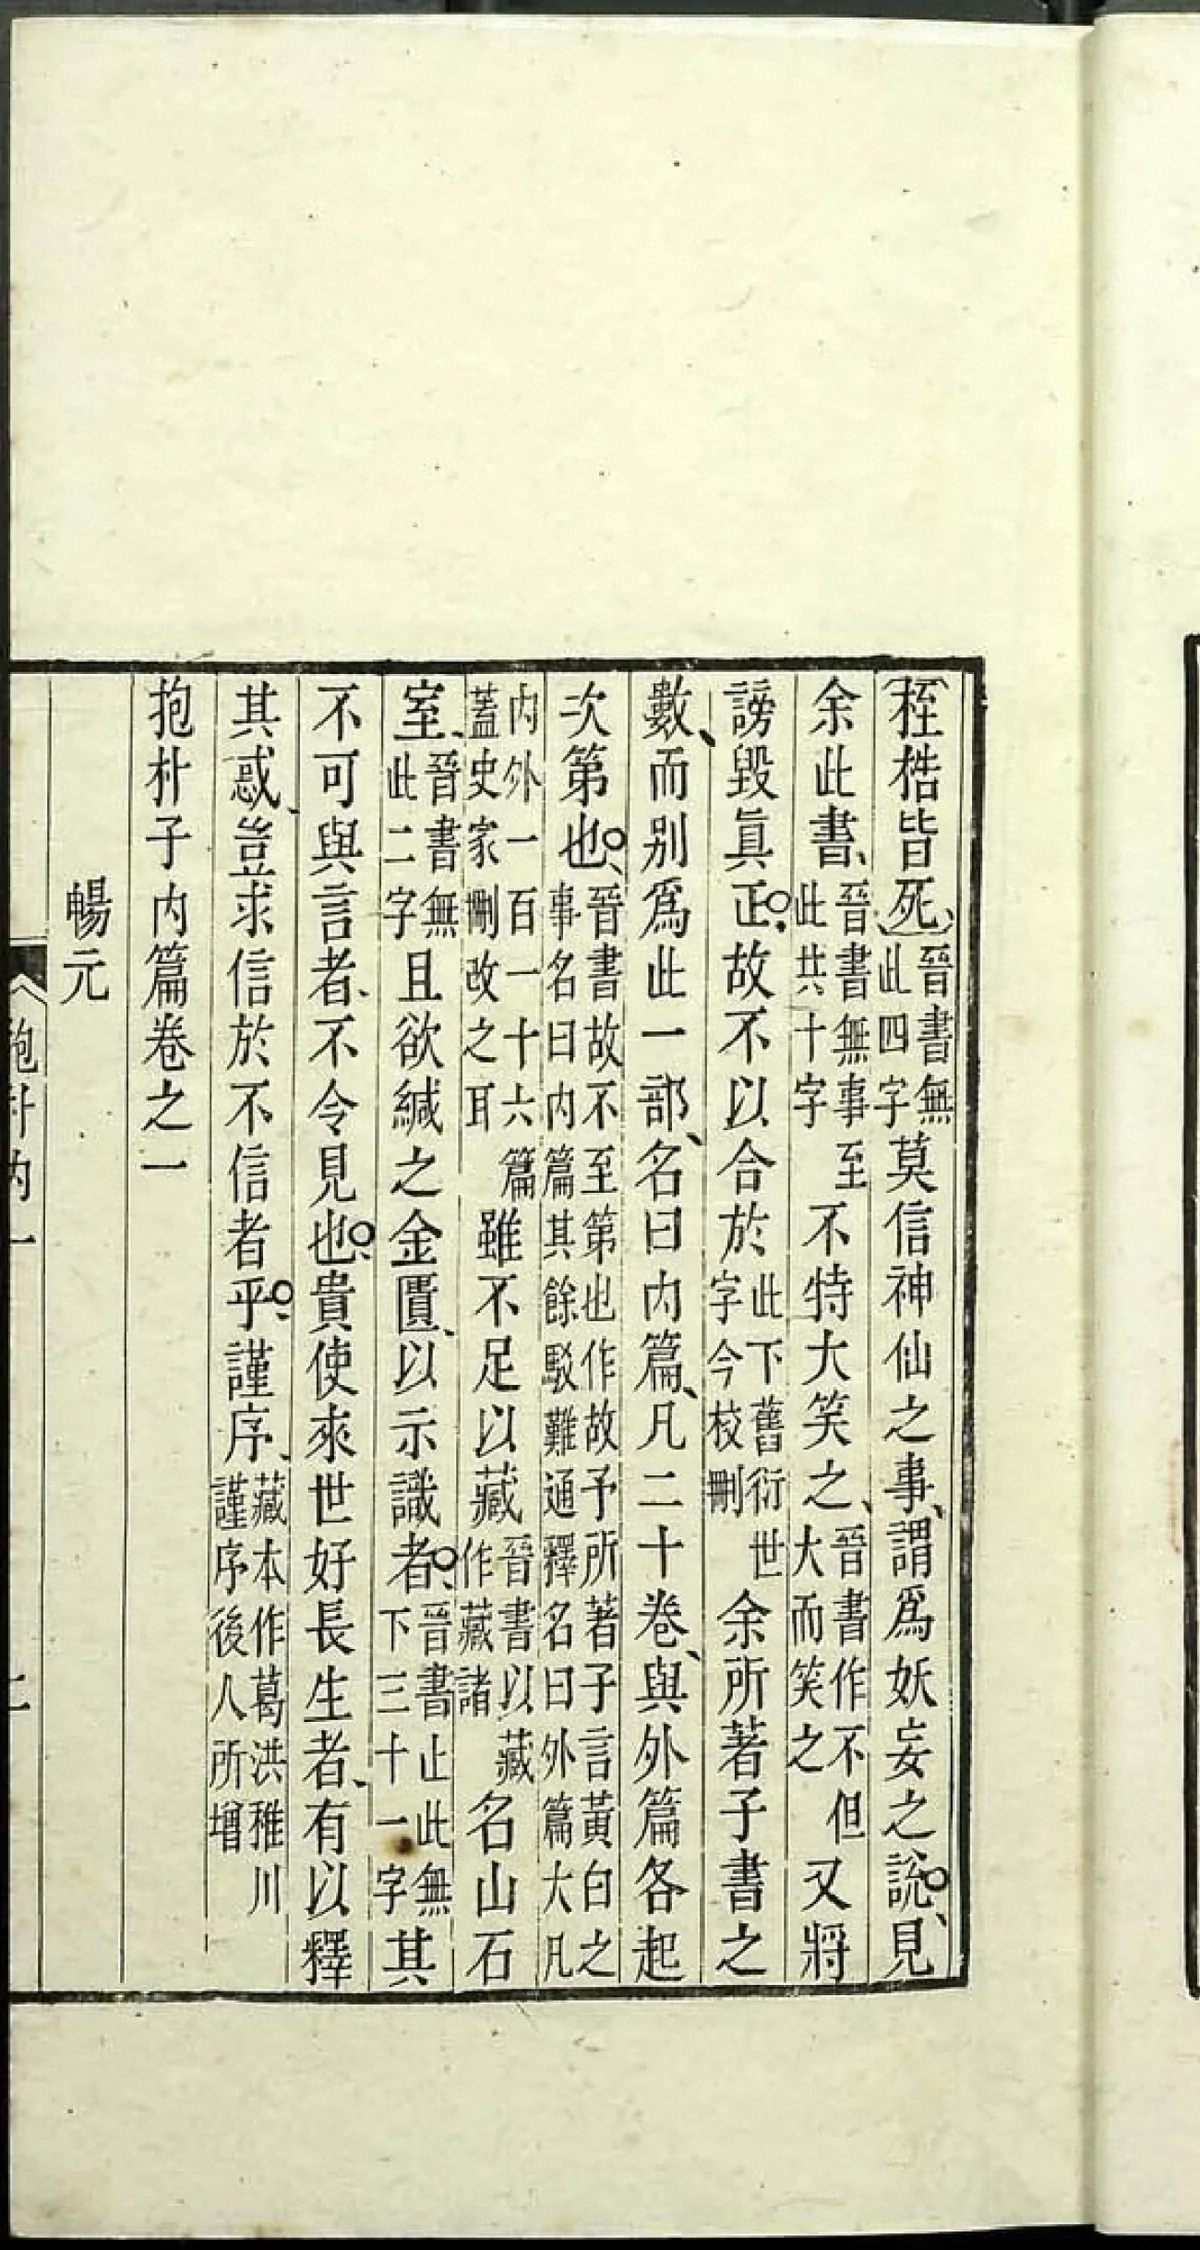 桎梏皆死、晉書無此四字莫信神仙之事、謂爲妖妄之說。見
余此書、晉書無事至此共十字不特大笑之、晉書作不但大而笑之又將
謗毀眞正。故不以合於此下舊衍世字今校刪余所著子書之
數、而別爲此一部、名曰内篇、凡二十卷、與外篇各起
次第也。晉書故不至第也作故予所著子言黃白之事名曰内篇其餘駁難通釋名曰外篇大凡
内外一百一十六篇蓋史家刪改之耳雖不足以藏晉書以藏作藏諸名山石
室、晉書無此二字且欲緘之金匱、以示識者。晉書止此無下三十一字其
不可與言者、不令見也。貴使來世好長生者、有以釋
其惑、豈求信於不信者乎。謹序、藏本作葛洪稚川謹序後人所增
抱朴子内篇卷之一
暢元
抱朴内一